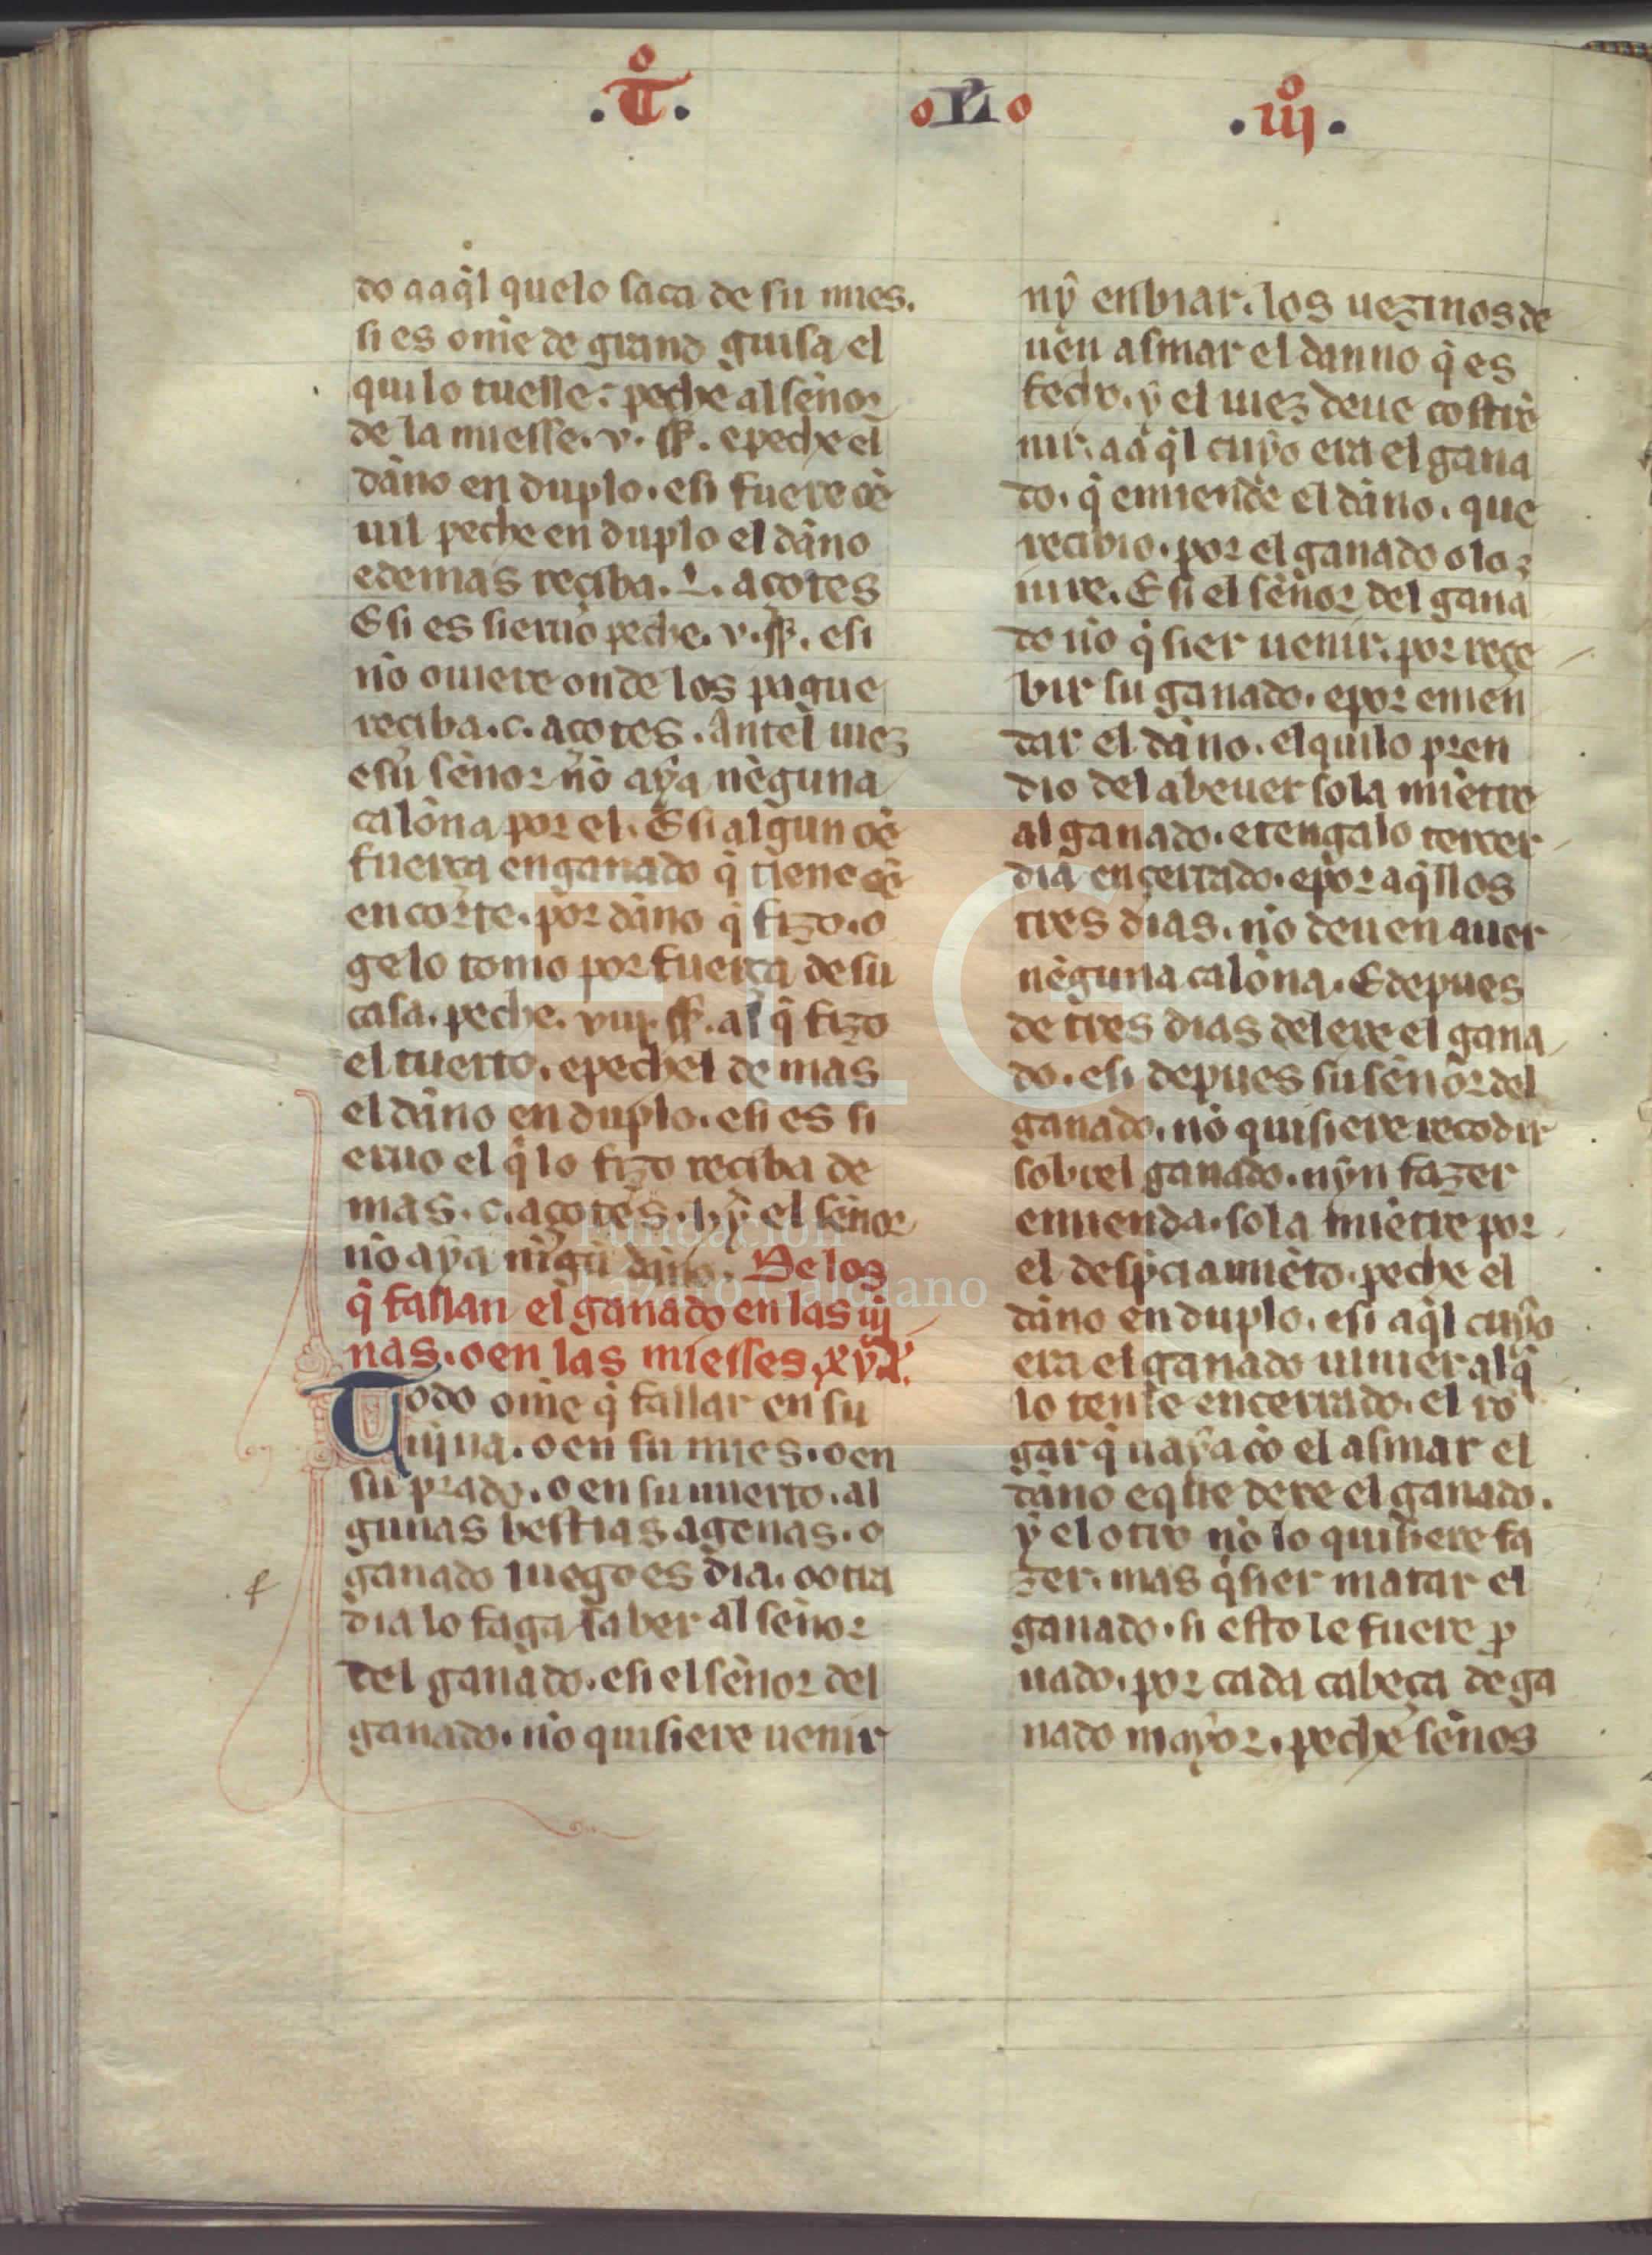 .T̊. oLo .iiij̊.
do aaq̃l quelo saca de su mies.
si es om̃e de grand guisa el
qui lo tuelle: peche al señor
de la miesse. v. ss̃. e peche el
dãno en duplo. esi fuere oẽ
uil peche en duplo el dãno
edemas reciba. L. açotes
Esi es sieruo peche. v. ss̃. esi
nõ ouiere onde los pague
reciba. c. açotes. Antel iuez
esu señor nõ aya nẽguna
calõna por el. Esi algun oẽ
fuerça enganado q̃ tiene oẽ
en corte. por dãno q̃ fizo. o
gelo tomo por fuerça de su
casa. peche. viij. ss̃. al q̃ fizo
el tuerto. epechel de mas
el dãno en duplo. esi es si
eruo el q̃ lo fizo reciba de
mas. c. açotes. hy el señor
nõ aya nĩgũ dãno. De los
q̃ fallan el ganado en las uij
nas. o en las miesses. xv.
Todo om̃e q̃ fallar en su
uijna. o en su mies. o en
su prado. o en su uuerto. al
gunas bestias agenas. o
ganado luego es dia. o otra
dia lo faga saber al señor
del ganado. esi el señor del
ganado. nõ quisiere uenir
nỹ enbiar. los uezinos de
uen asmar el danno q̃ es
fecho. y el iuez deue costrẽ
nir. aaq̃l cuyo era el gana
do. q̃ emiende el dãno. que
recibio. por el ganado o lo
iure. Esi el señor del gana
do nõ q̃sier uenir. por reçe
bir su ganado. epor emen
dar el dãno. el quilo pren
dio del abeuer sola miẽtre
al ganado. etengalo tercer
dia encerrado. epor aq̃llos
tres dias. nõ deuen auer
nẽguna calõna. Edepues
de tres dias delexe el gana
do. esi depues su señor del
ganado. nõ quisiere recodir
sobrel ganado. nyn fazer
emienda. sola miẽtre por
el despciamiẽto. peche el
dãno en duplo. esi aq̃l cuyo
era el ganado uinier al q̃
lo tenie encerrado. el ro
gar q̃ uaya cõ el asmar el
dãno e q̃lle dexe el ganado.
y el otro nõ lo quisiere fa
zer. mas q̃sier matar el
ganado. si esto le fuere p̃
uado. por cada cabeça de ga
nado mayor. peche seños
Fundación
Lázaro Galdiano
FLG